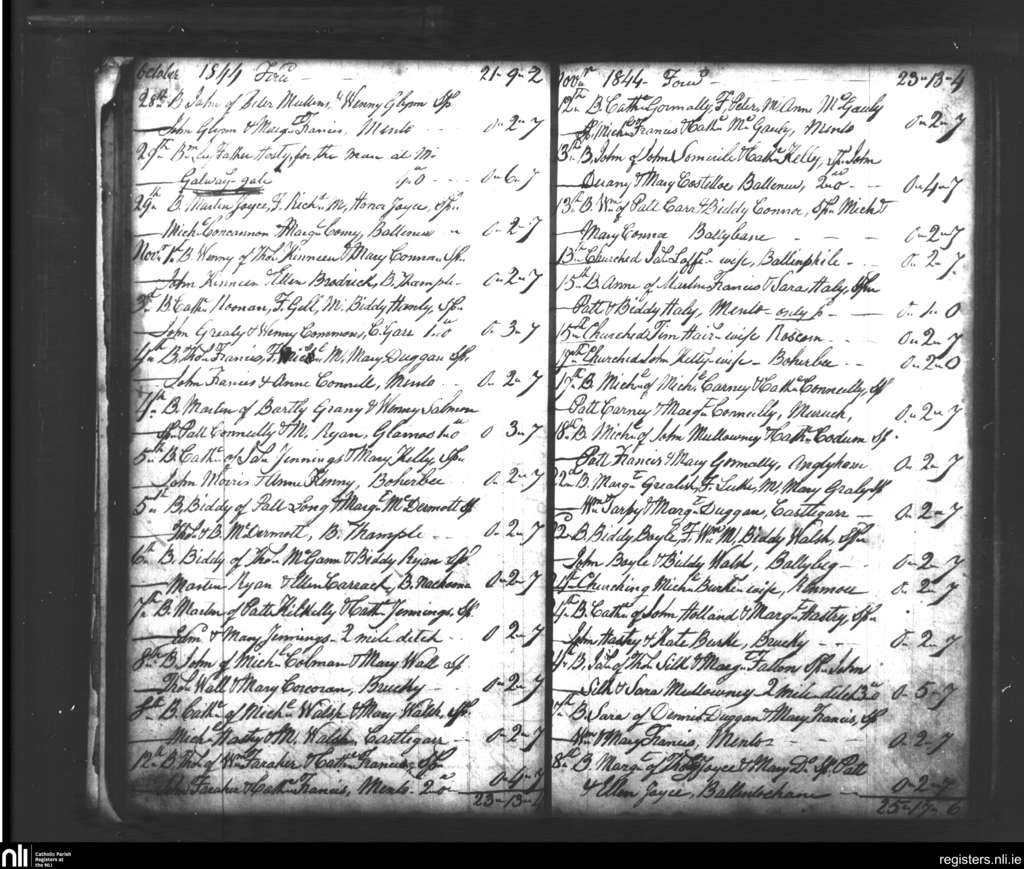 October 1844 Ford 21-9-2
28th B John of Peter Mullins, & Wenny Glynn Sp.
John Glynn & Marg. Francis, Menlo 0-2-7
29th By Father Hasty, for the man at
Galway gate 4=0 0-6-7
29th B. Martin Joyce, F. Rich. M, Honor Joyce, Sp.
Mich. Concannon & Marg. Comy, Ballence 0-2-7
Nov. 1st B. Wenny of Tho. Kinneen & Mary Connan Sp.
John Kinneen Ellen Brodrick, B. Thample 0-2-7
3d B Cath. Noonan, F. Gill, M. Biddy Sp.
John Grealy & Wenny Commons, C. Garr 1=0 0-3-7
4th B. Tho. Francis, F. Mich. M. Mary Duggan Sp.
John Francis & Anne Connell, Menlo 0-2-7
4th B. Martin of Bartly Grany & Wenny Salmon
Sp. Patt Connelly & M. Ryan, 0 3-7
5th B Cath. of Jas. Jennings & Mary Kelly, Sp.
John Morris & Anne Kenny, Boherbee 0-2-7
5th B. Biddy of Patt Long & Marg. McDermott Sp
Tho. & B. McDermott, B. Thample 0-2-7
6th B. Biddy of Tho. McGann & Biddy Ryan Sp
Martin Ryan & Ellen Carrach, 0-2-7
7th B. Martin of Patt Kilkelly & Cath. Jennings, Sp.
Edm. & Mary Jennings 2 mile ditch 0 2-7
8th B. John of Mich. Colman & Mary Wall Sp.
Tho. Wall & Mary Corcoran, Brucky 0-2-7
8th B. Cath. of Mich. Walsh & Mary Walsh, Sp.
Mich. Hasty & M. Walsh, Castlegarr 0-2-7
12th B. Tho. of Wm. Faraher & Cath. Francis, Sp.
John Faraher & Cath. Francis, Menlo 2=0 0-4-7
23-13-4
Nov. 1844 Ford 23-13-4
12th B. Cath. Gormally, F. Peter, M. Anne McGauly
Sp. Mich. Francis & Cath. McGauly, Menlo 0-2-7
13th B. John of John & Cath. Kelly, Sp. John
& Mary Costelloe Ballence, 2=0 0-4-7
13th B. Wm. of Patt Carr & Biddy Connor, Sp. Mich. &
Mary Connor Ballybane 0-2-7
13th Churched Jas. wife, Ballinphile 0-2-7
15th B. Anne of Martin Francis & Sara Haly, Sp.
Patt & Biddy Haly, Menlo only 0-1-0
15th Churched Tim Hair wife Roscom 0-2-7
17th Churched John Kelly wife Boherbee 0-2-0
17th B. Mich. of Mich. Carney & Cath. Conneelly, Sp
Patt Carney & Marg. Conneelly, 0-2-7
18th B. Mich. of John Mullowney & Cath. Codum Sp.
Patt Francis & Mary Gormally, 0-2-7
22nd B. Marg. Grealish, F. Luke, M, Mary Graly Sp
Wm. & Marg. Duggan, Castlegarr 0-2-7
22d B. Biddy Boyle F. Wm. M. Biddy Walsh, Sp.
John Boyle & Biddy Walsh, Ballybeg 0-2-7
Churching Mich. Burke wife, Renmore 0-2-7
B. Cath. of John Holland & Marg. Hastry, Sp.
John Hastry & Kate Burke, Brucky 0-2-7
B. Jas. of Tho. Silk & Marg. Fallon Sp. John
Silk & Sara Mullowney 2 Mile ditch 3=0 0-5-7
B. Sara of Dennis Duggan & Mary Francis, Sp
Wm. & Mary Francis, Menlo 0-2-7
B. Marg. of Joyce & Mary Do. Sp. Patt
& Ellen Joyce, 0-2-7
25-17-6
nli Catholic Parish
Registers at
the NLI
registers.nli.ie